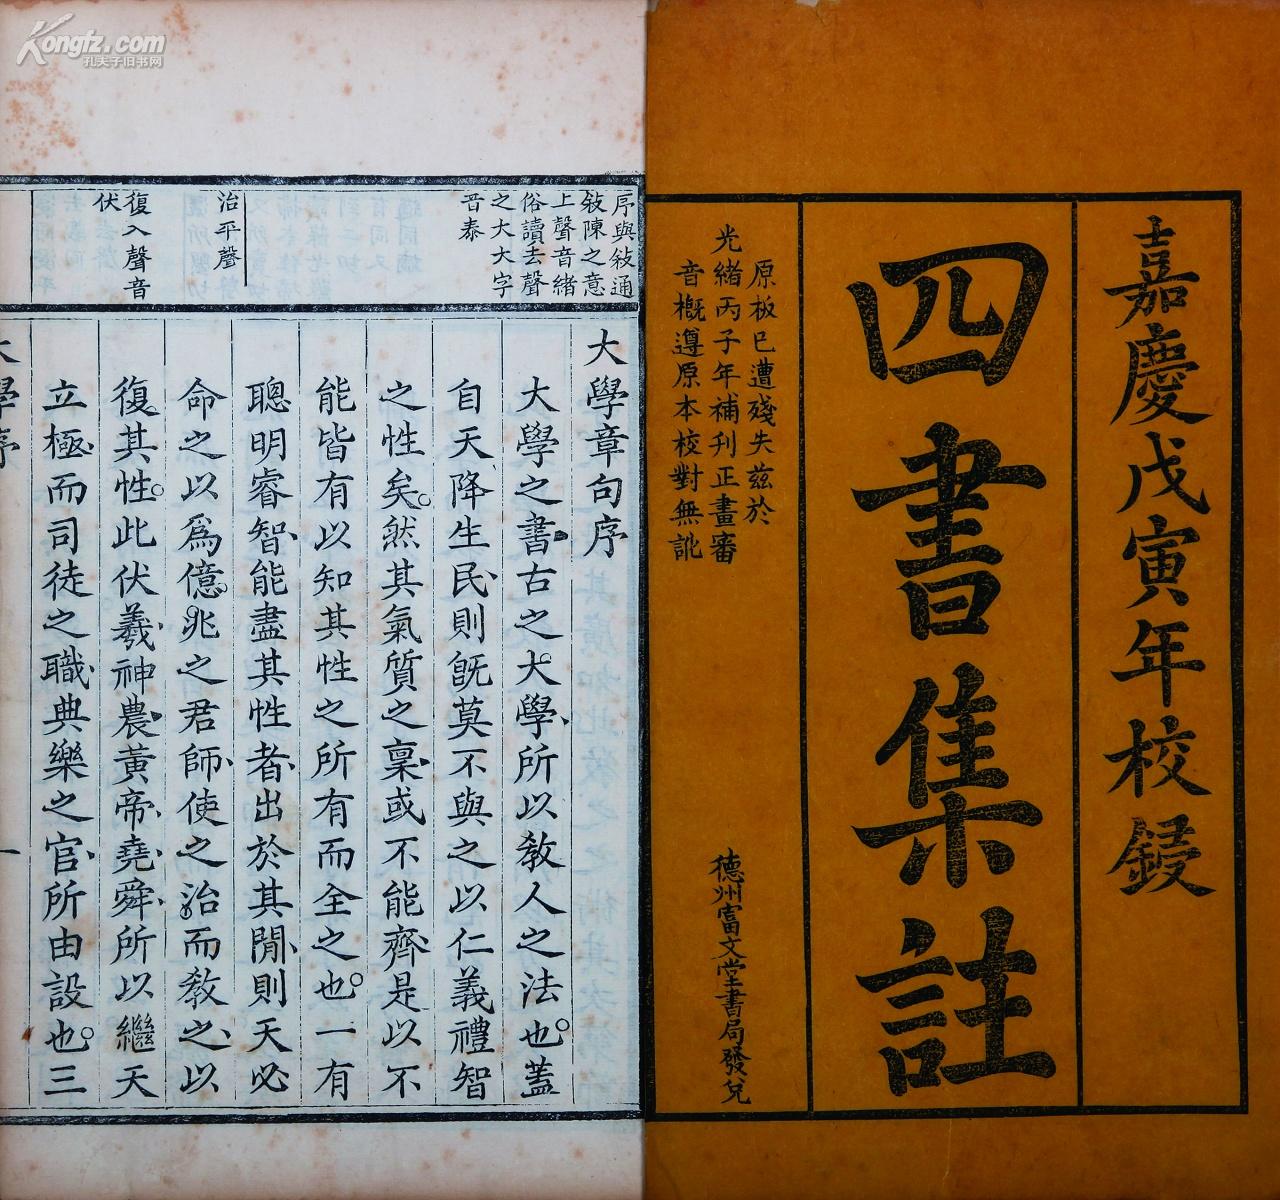 嘉慶戊寅年校鋟
四書集註
原板已遭殘失茲於
光緒丙子年補刊正畫審
音概遵原本校對無訛
德州富文堂書局發兌
序與敍通
敍陳之意
上聲音緒
俗讀去聲
之大大字
音泰
治平聲
復入聲音
伏
大學章句序
大學之書古之大學所以教人之法也蓋
自天降生民則旣莫不與之以仁義禮智
之性矣然其氣質之稟或不能齊是以不
能皆有以知其性之所有而全之也一有
聰明睿智能盡其性者出於其閒則天必
命之以爲億兆之君師使之治而教之以
復其性此伏羲神農黃帝堯舜所以繼天
立極而司徒之職典樂之官所由設也三
大學序
一
Kongfz.com
孔夫子旧书网